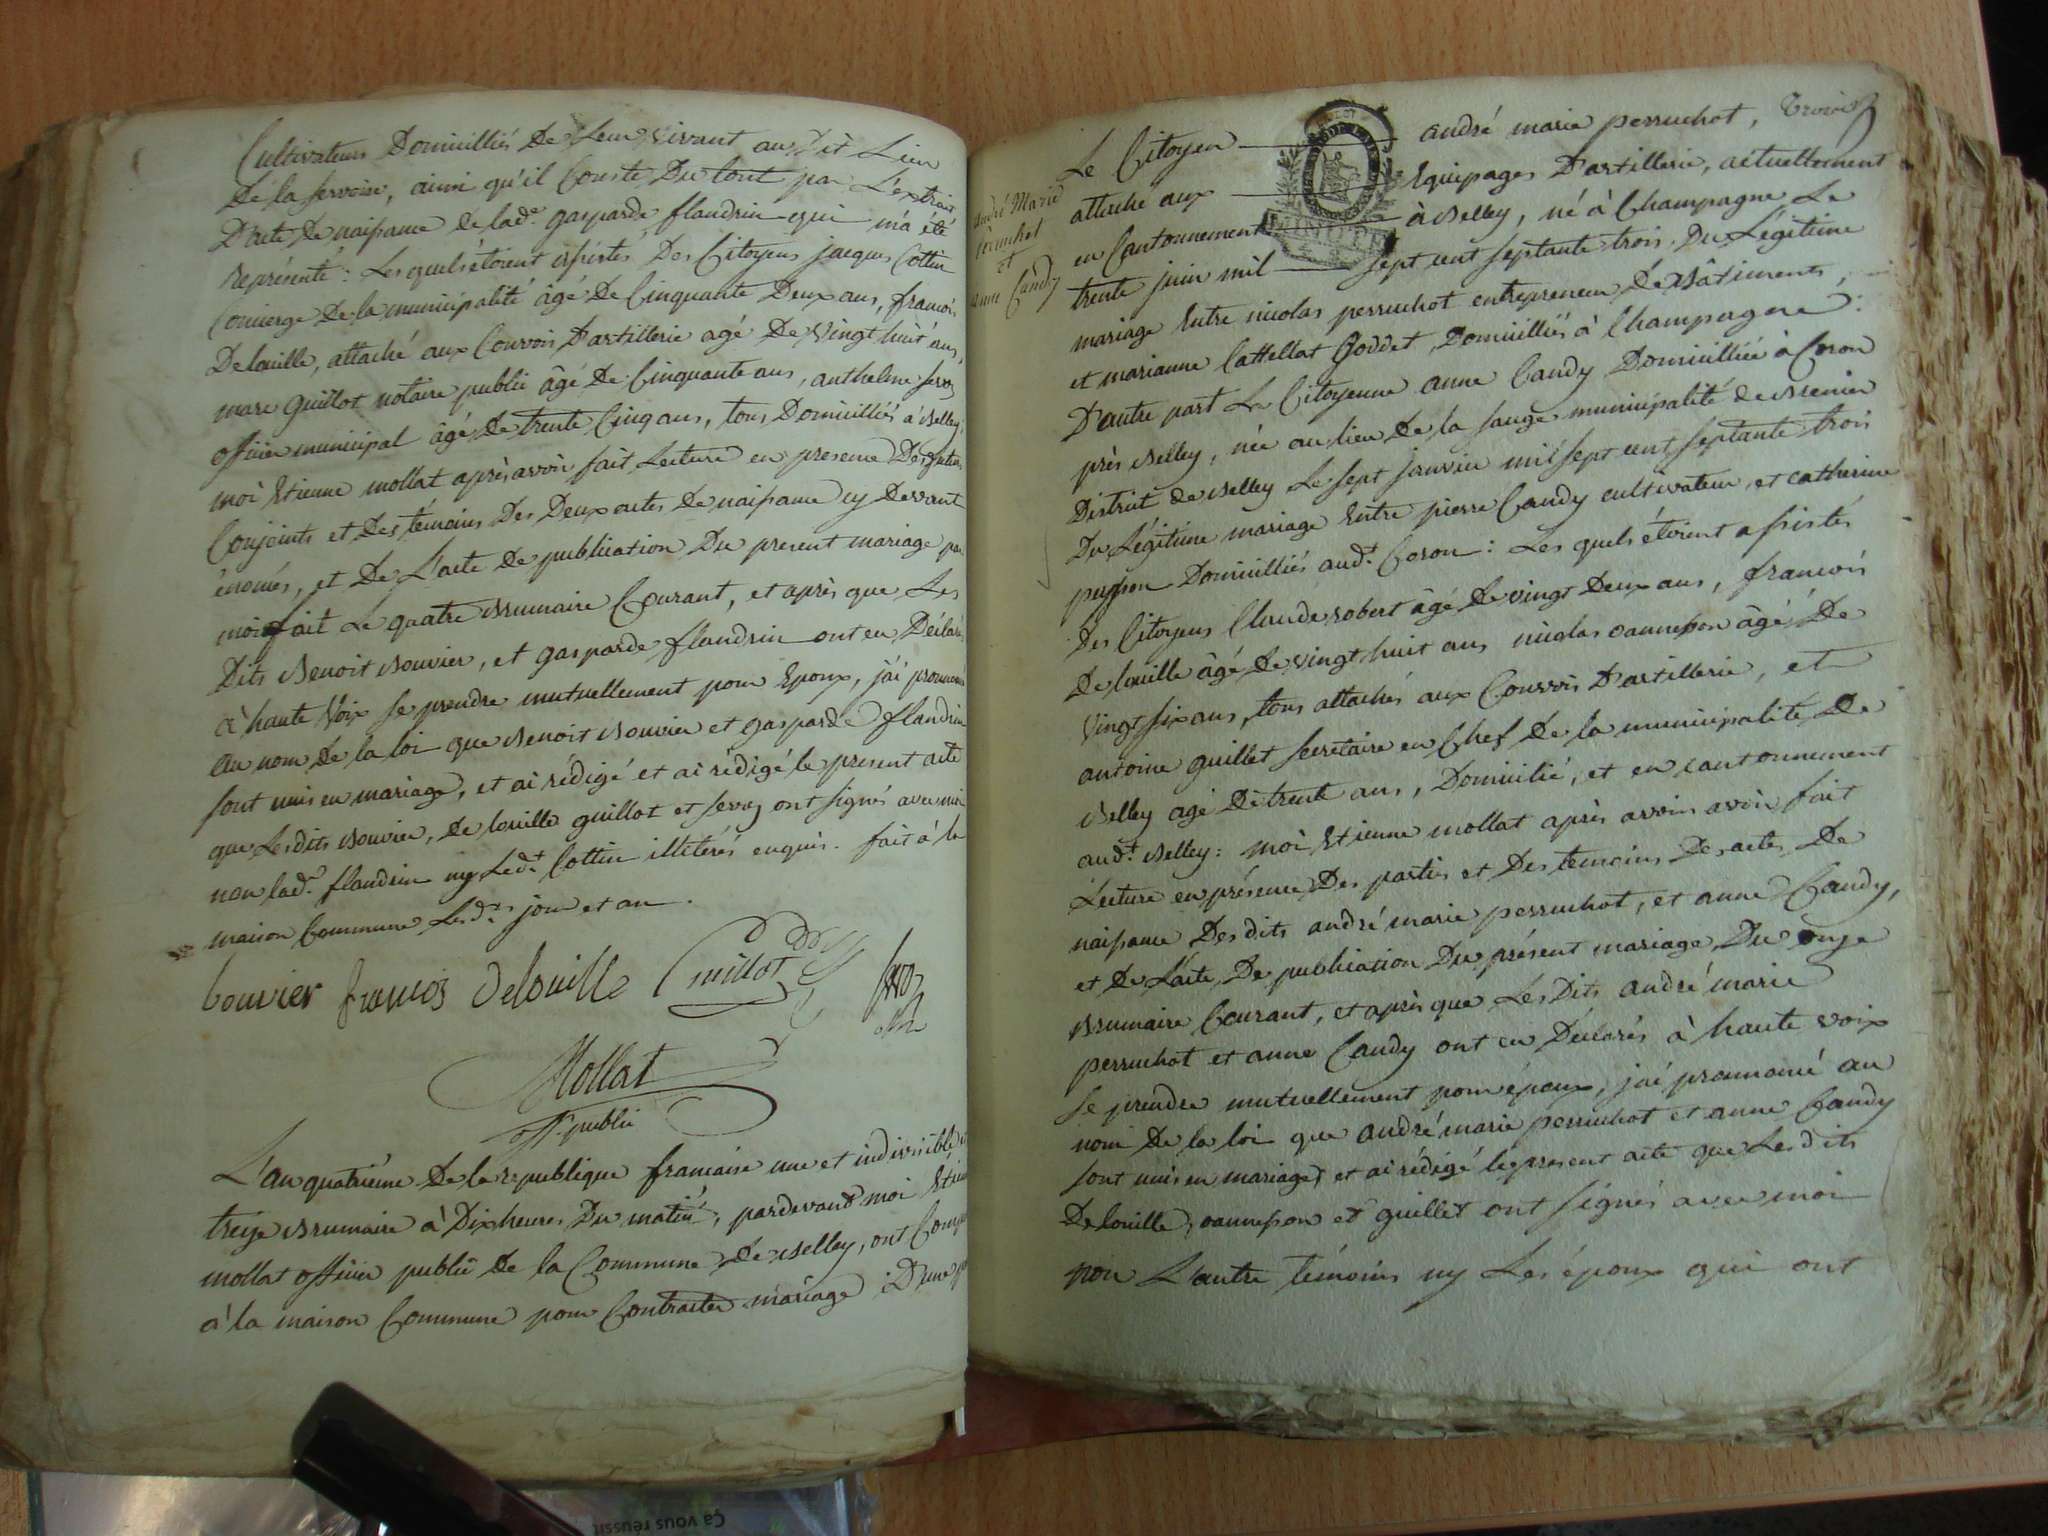 Cultivateurs Domicilliés De Leur vivant au Dit Lieu
De la servoire, ainsi qu'il Conste Du tout par L'extrait
D'acte De naissance de lad.e gasparde flandrin qui m'a été
représenté : Les quels étoient assistés Des Citoyens jacques Cottin
Concierge De la municipalité âgé De Cinquante Deux ans, francois
Delouille, attaché aux Convois D'artillerie agé De vingt huit ans,
marc guillot notaire public âgé De Cinquante ans, anthelme
officier municipal âgé De trente Cinq ans, tous Domicilliés à Belley;
moi Etienne mollat après avoir fait Lecture en presence Des futurs
Conjoints et Des témoins Des Deux actes De naissance cy Devant
énoncés, et De L'acte De publication Du present mariage par
moi fait Le quatre Brumaire Courant, et après que Les
Dits Benoit Bouvier, et gasparde flandrin ont eu Déclaré
à haute Voix se prendre mutuellement pour Epoux, j'ai prononcé
au nom De la loi que Benoit Bouvier et gasparde flandrin
sont unis en mariage, et ai rédigé et ai rédigé le present acte
que Lesdits Bouvier, De louille guillot et ont signés avec moi
non lad.e flandrin ny Led.t Cottin illitérés enquis. fait à la
maison Commune Lesd.ts jour et an.
bouvier francois Delouille Guillot
Mollat
off. public
L'an quatriéme De la republique francaise une et indivisible,
treize Brumaire à Dix heures Du matin, pardevant moi Etienne
mollat officier public De la Commune De Belley, ont
à la maison Commune pour Contracter mariage : D'une
andré Marie
perruchot
et
anne Candy
Le Citoyen andré marie perruchot,
attaché aux Equipages D'artillerie, actuellement
en Cantonnement à Belley, né à Champagne Le
trente juin mil sept cent septante trois. Du Légitime
mariage Entre nicolas perruchot entrepreneur De Bâtiments,
et marianne Cattellat Goddet, Domicilliés à Champagne :
D'autre part La Citoyenne anne Candy Domicilliée à Coron
près Belley, née au lieu De la sauge municipalité de Brenier
District de Belley Le sept janvier mil sept cent septante trois
Du Légitime mariage Entre pierre Candy cultivateur, et catherine
Domicilliés aud.t Coron : Les quels étoient assistés
Des Citoyens Claude robert âgé De vingt Deux ans, francois
De louille âgé De vingt huit ans nicolas âgé De
vingt six ans, tous attachés aux Convois D'artillerie, et
antoine guillet secretaire en Chef De la municipalité De
Belley agé De trente ans, Domicilié, et en cantonnement
aud.t Belley : moi Etienne mollat après avoir avoir fait
Lecture en présence Des parties et Des temoins Des actes De
naissance Des dits andré marie perruchot, et anne Candy,
et De L'acte De publication Du présent mariage Du onze
Brumaire Courant, et après que Les Dits andré marie
perruchot et anne Candy ont eu Déclarés à haute voix
se prendre mutuellement pour époux, j'ai prononcé au
nom De la loi que andré marie perruchot et anne Candy
sont unis en mariage, et ai rédigé le present acte que Les dits
De louille, et guillet ont signés avec moi
non L'autre témoins ny Les époux qui ont
Ça vous réussit